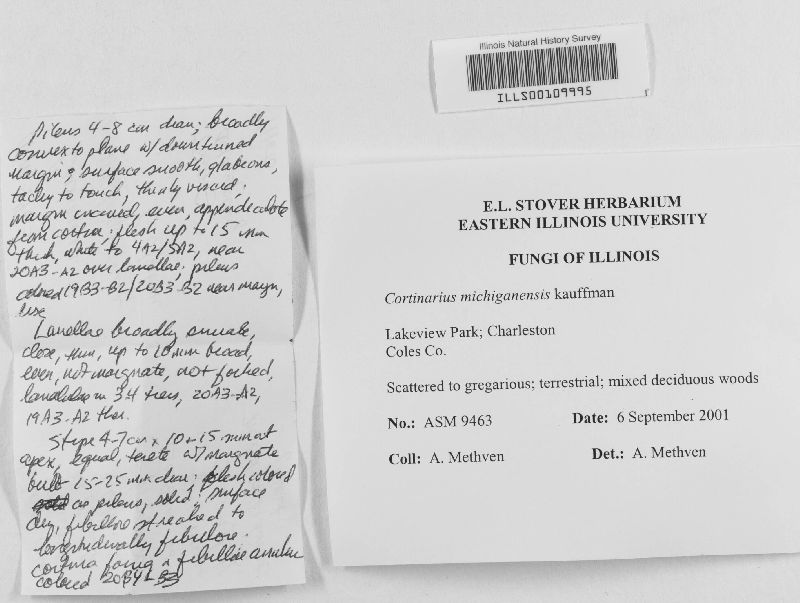 Illinois Natural History Survey
ILLS00109995
Pileus 4-8 cm diam; broadly
convex to plane w/ downturned
margin; surface smooth, glabrous,
tacky to touch, thinly viscid;
margin incurved, even, appendiculate
from cortina; flesh up to 15 mm
thick, white to 4A2/5A2, near
20A3-A2 over lamellae; pileus
colored 19B3-B2/20B3-B2 near margin,
disc
Lamellae broadly sinuate,
close, thin, up to 10 mm broad,
even, not marginate, not forked,
lamellulae in 3-4 tiers, 20A3-A2,
19A3-A2 then.
Stipe 4-7 cm x 10-15 mm at
apex, equal, terete w/ marginate
bulb 15-25 mm diam; flesh colored
as pileus, solid; surface
dry, fibrillose streaked to
longitudinally fibrillose.
cortina forming a fibrillose annulus
colored 20B4-B3
E.L. STOVER HERBARIUM
EASTERN ILLINOIS UNIVERSITY
FUNGI OF ILLINOIS
Cortinarius michiganensis kauffman
Lakeview Park; Charleston
Coles Co.
Scattered to gregarious; terrestrial; mixed deciduous woods
No.: ASM 9463 Date: 6 September 2001
Coll: A. Methven Det.: A. Methven